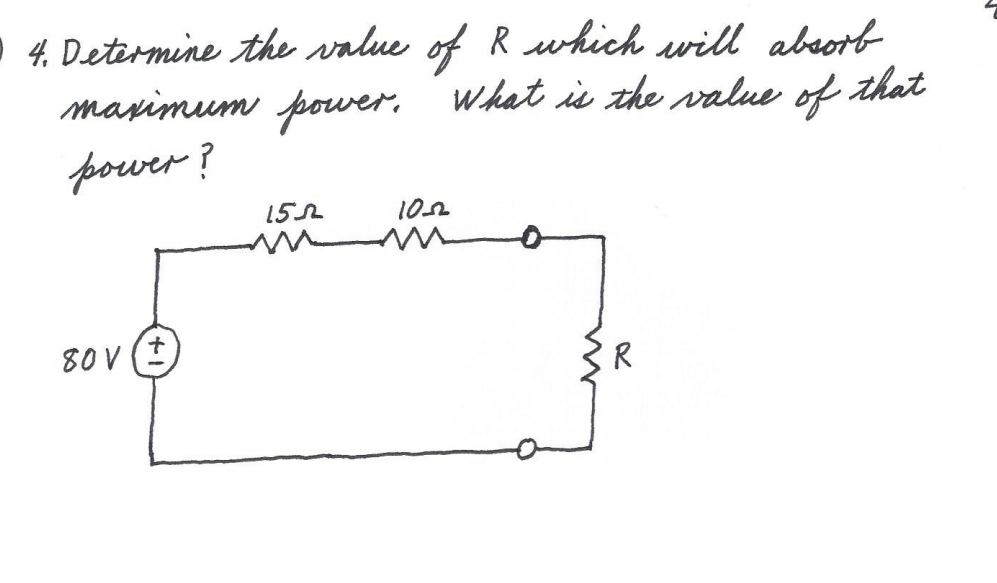 4. Determine the value of R which will absorb
maximum power. What is the value of that
power?
15Ω 10Ω
80 V + - R